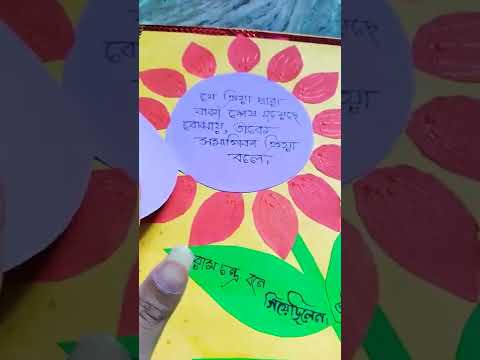 যে ক্রিয়া দ্বারা
বাক্য শেষ হয়েছে
বোঝায়, তাকে
সমাপিকা ক্রিয়া
বলে।
রামচন্দ্র বনে
গিয়েছিলেন।